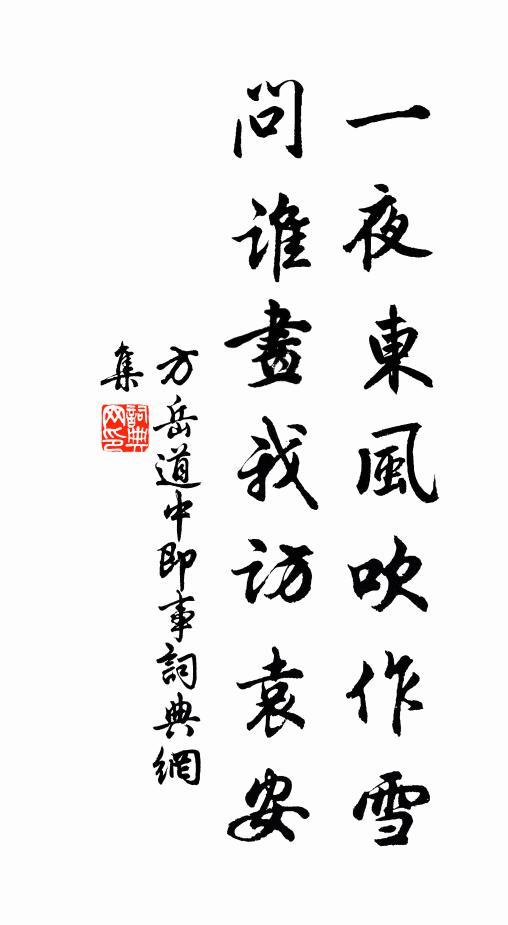 一夜東風吹作雪
問誰畫我訪袁安
方岳道中即事詞典網
集
詞典
网印